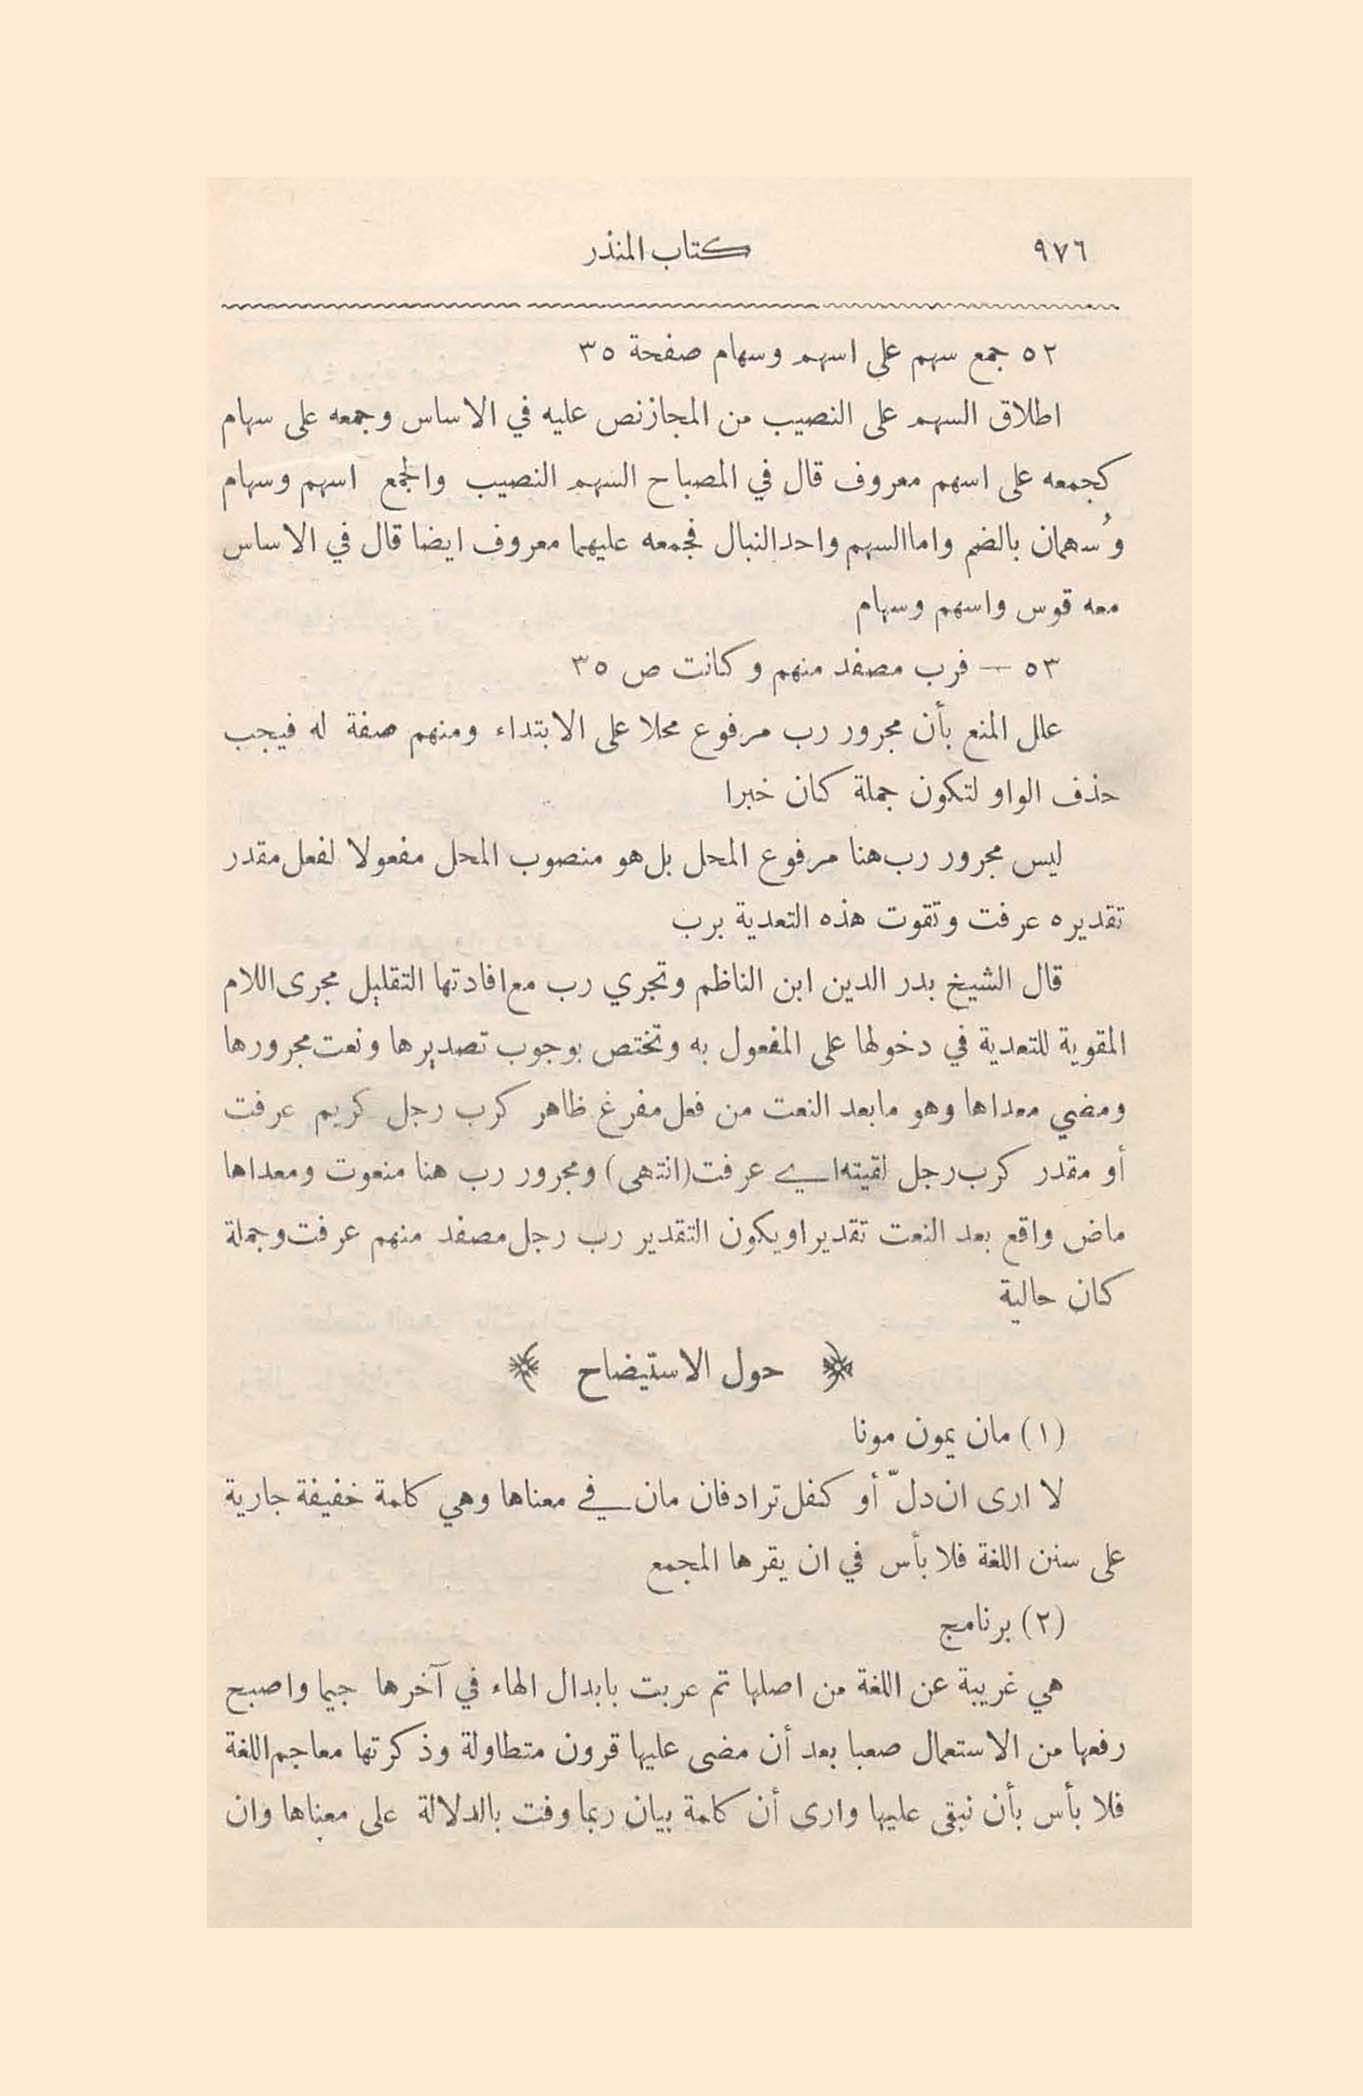 ٩٧٦ كتاب المنذر
٥٢ جمع سهم على اسهم وسهام صفحة ٣٥
اطلاق السهم على النصيب من المجاز نص عليه في الاساس وجمعه على سهام
كجمعه على اسهم معروف قال في المصباح السهم النصيب والجمع اسهم وسهام
وسُهمان بالضم واما السهم واحد النبال فجمعه عليهما معروف ايضا قال في الاساس
معه قوس واسهم وسهام
٥٣ — فرب مصفد منهم وكانت ص ٣٥
علل المنع بأن مجرور رب مرفوع محلا على الابتداء ومنهم صفة له فيجب
حذف الواو لتكون جملة كان خبرا
ليس مجرور رب هنا مرفوع المحل بل هو منصوب المحل مفعولا لفعل مقدر
تقديره عرفت وتقوت هذه التعدية برب
قال الشيخ بدر الدين ابن الناظم وتجري رب مع افادتها التقليل مجرى اللام
المقوية للتعدية في دخولها على المفعول به وتختص بوجوب تصديرها ونعت مجرورها
ومضي معداها وهو ما بعد النعت من فعل مفرغ ظاهر كرب رجل كريم عرفت
أو مقدر كرب رجل لقيته اي عرفت (انتهى) ومجرور رب هنا منعوت ومعداها
ماض واقع بعد النعت تقديرا ويكون التقدير رب رجل مصفد منهم عرفت وجملة
كان حالية
﴿ حول الاستيضاح ﴾
(١) مان يمون مونا
لا ارى ان دلّ أو كنفل ترادفان مان في معناها وهي كلمة خفيفة جارية
على سنن اللغة فلا بأس في ان يقرها المجمع
(٢) برنامج
هي غريبة عن اللغة من اصلها تم عربت بابدال الهاء في آخرها جيما واصبح
رفعها من الاستعمال صعبا بعد أن مضى عليها قرون متطاولة وذكرتها معاجم اللغة
فلا بأس بأن نبقي عليها وارى أن كلمة بيان ربما وفت بالدلالة على معناها وان